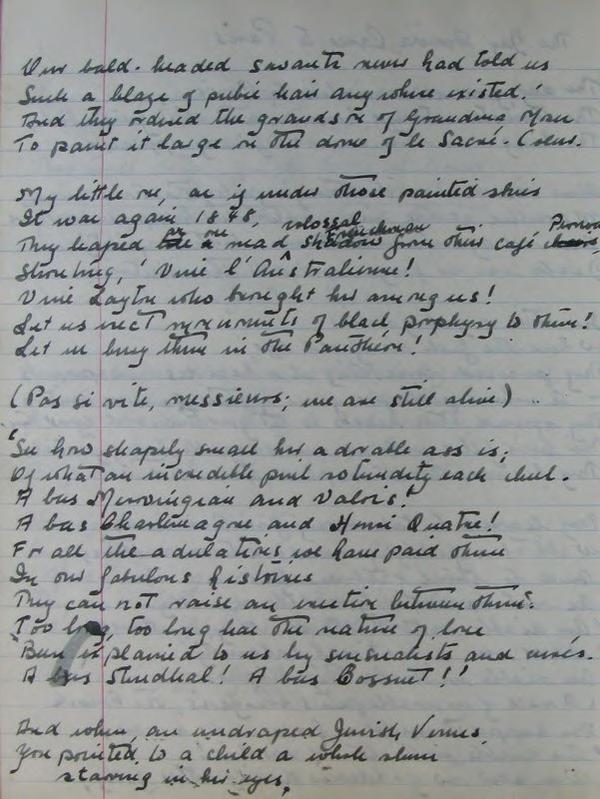 Our bald-headed savants never had told us
Such a blaze of pubic hair anywhere existed.'
And they ordered the grandson of Grandma Moses
To paint it large on the dome of le Sacré-Coeur.
My little one, as if under those painted skies
It was again 1848,
They leaped as one colossal mad Frenchman from their café
Shouting, 'Vive l'Australienne!
Vive Layton who brought her among us!
Let us erect monuments of black porphyry to them!
Let us bury them in the Pantheon!'
(Pas si vite, messieurs; we are still alive) ..
'See how shapely small her adorable ass is;
Of what an incredible pink rotundity each cheek.
A bas Merovingian and Valois!
A bas Charlemagne and Henri Quatre!
For all the adulations we have paid them
In our fabulous histoires
They can not raise an erection between them.
Too long, too long has the nature of love
Been explained to us by sensualists and curés.
A bas Stendhal! A bas Bossuet!'
And when, an undraped Jewish Venus,
You pointed to a child a whole slum
starving in her eyes,